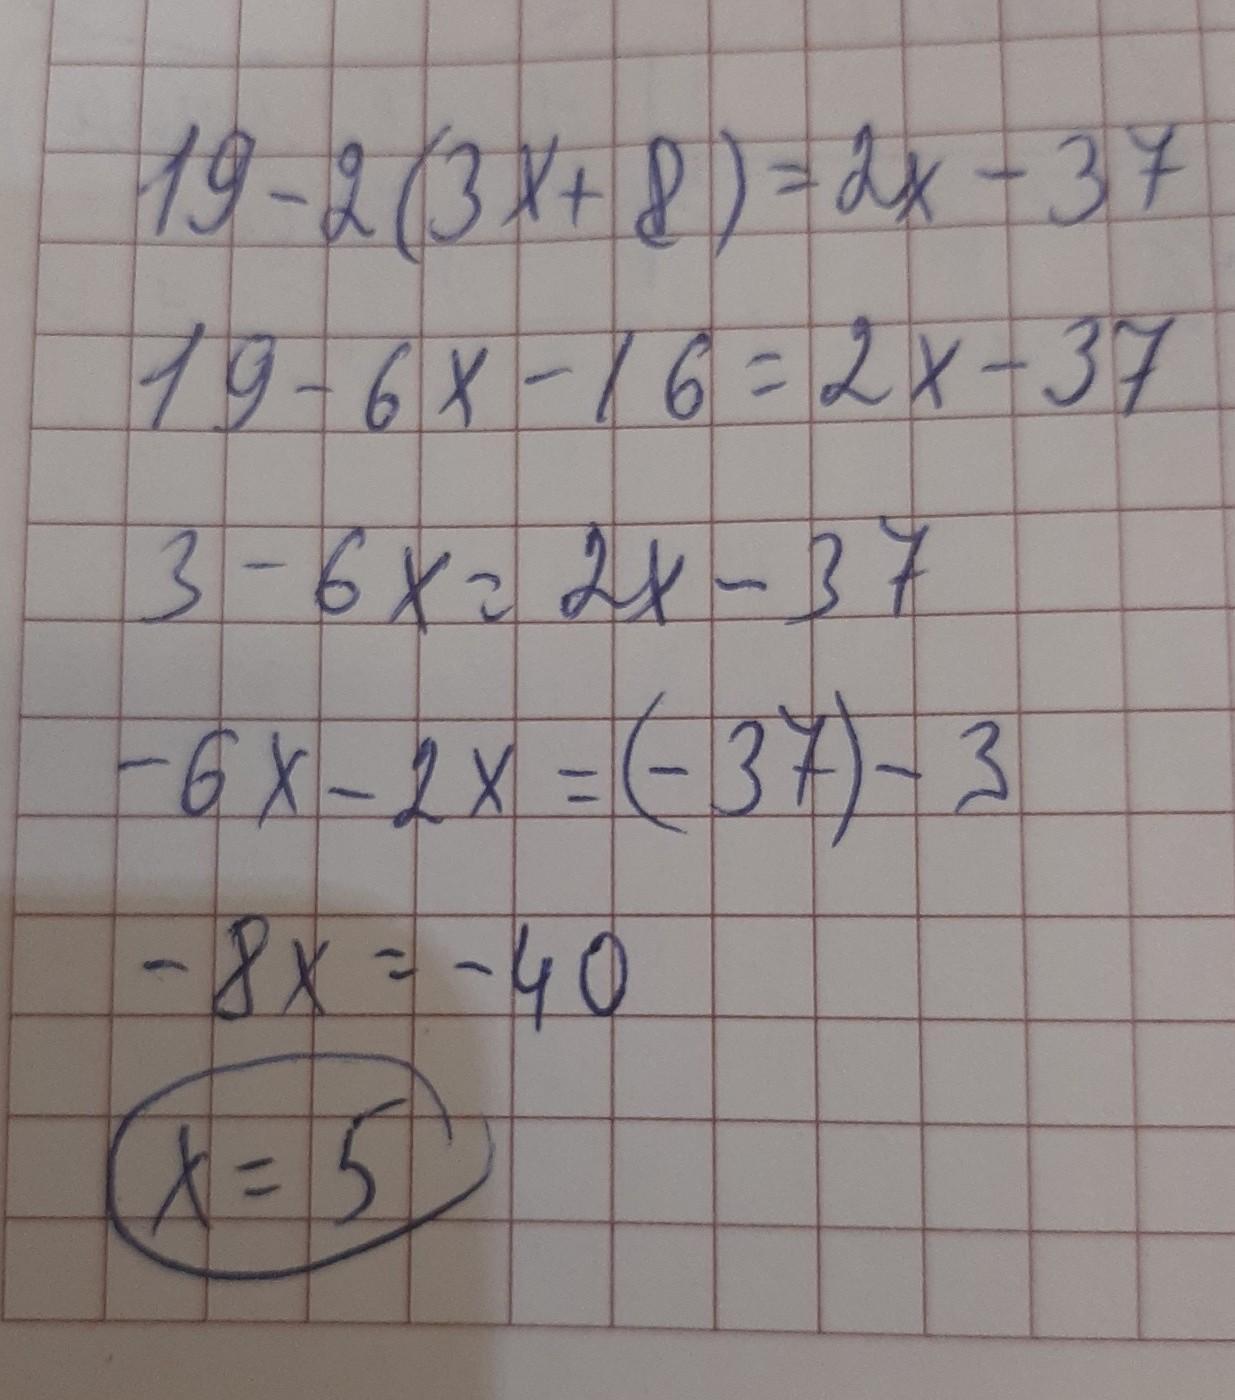 19-2(3x+8)=2x-37
19-6x-16=2x-37
3-6x=2x-37
-6x-2x=(-37)-3
-8x=-40
x=5